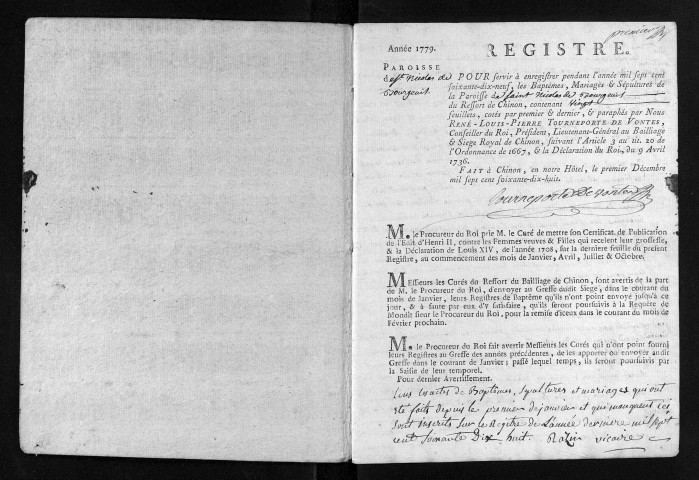 premier
Année 1779.
REGISTRE.
PAROISSE
de St Nicolas de
Bourgueil
POUR servir à enregistrer pendant l'année mil sept cent
soixante-dix-neuf, les Baptêmes, Mariages & Sépultures de
la Paroisse de saint Nicolas de Bourgueil
du Ressort de Chinon, contenant vingt
feuillets, cotés par premier & dernier, & paraphés par Nous
RENÉ-LOUIS-PIERRE TOURNEPORTE DE VONTES,
Conseiller du Roi, Président, Lieutenant-Général au Bailliage
& Siege Royal de Chinon, suivant l'Article 3 au tit. 20 de
l'Ordonnance de 1667, & la Déclaration du Roi, du 9 Avril
1736.
FAIT à Chinon, en notre Hôtel, le premier Décembre
mil sept cent soixante-dix-huit.
Tourneporte De Vontes
M. le Procureur du Roi prie M. le Curé de mettre son Certificat de Publication
de l'Edit d'Henri II, contre les Femmes veuves & Filles qui recelent leur grossesse,
& la Déclaration de Louis XIV, de l'année 1708, sur la derniere feuille du présent
Registre, au commencement des mois de Janvier, Avril, Juillet & Octobre.
MEssieurs les Curés du Ressort du Bailliage de Chinon, sont avertis de la part
de M. le Procureur du Roi, d'envoyer au Greffe dudit Siege, dans le courant du
mois de Janvier, leurs Registres de Baptême qu'ils n'ont point envoyé jusqu'à ce
jour, & à faute par eux d'y satisfaire, qu'ils seront poursuivis à la Requête de
Mondit sieur le Procureur du Roi, pour la remise d'iceux dans le courant du mois de
Février prochain.
M. le Procureur du Roi fait avertir Messieurs les Curés qui n'ont point fourni
leurs Registres au Greffe des années précédentes, de les apporter ou envoyer audit
Greffe dans le courant de Janvier; passé lequel temps, ils seront poursuivis par
la Saisie de leur temporel.
Pour dernier Avertissement.
Les actes de Baptêmes, Sepultures et mariages qui ont
été faits depuis le premier de janvier et qui manquent ici
sont inscrits sur le Registre de L'année derniere mil sept
cent soixante Dix huit. Razin vicaire